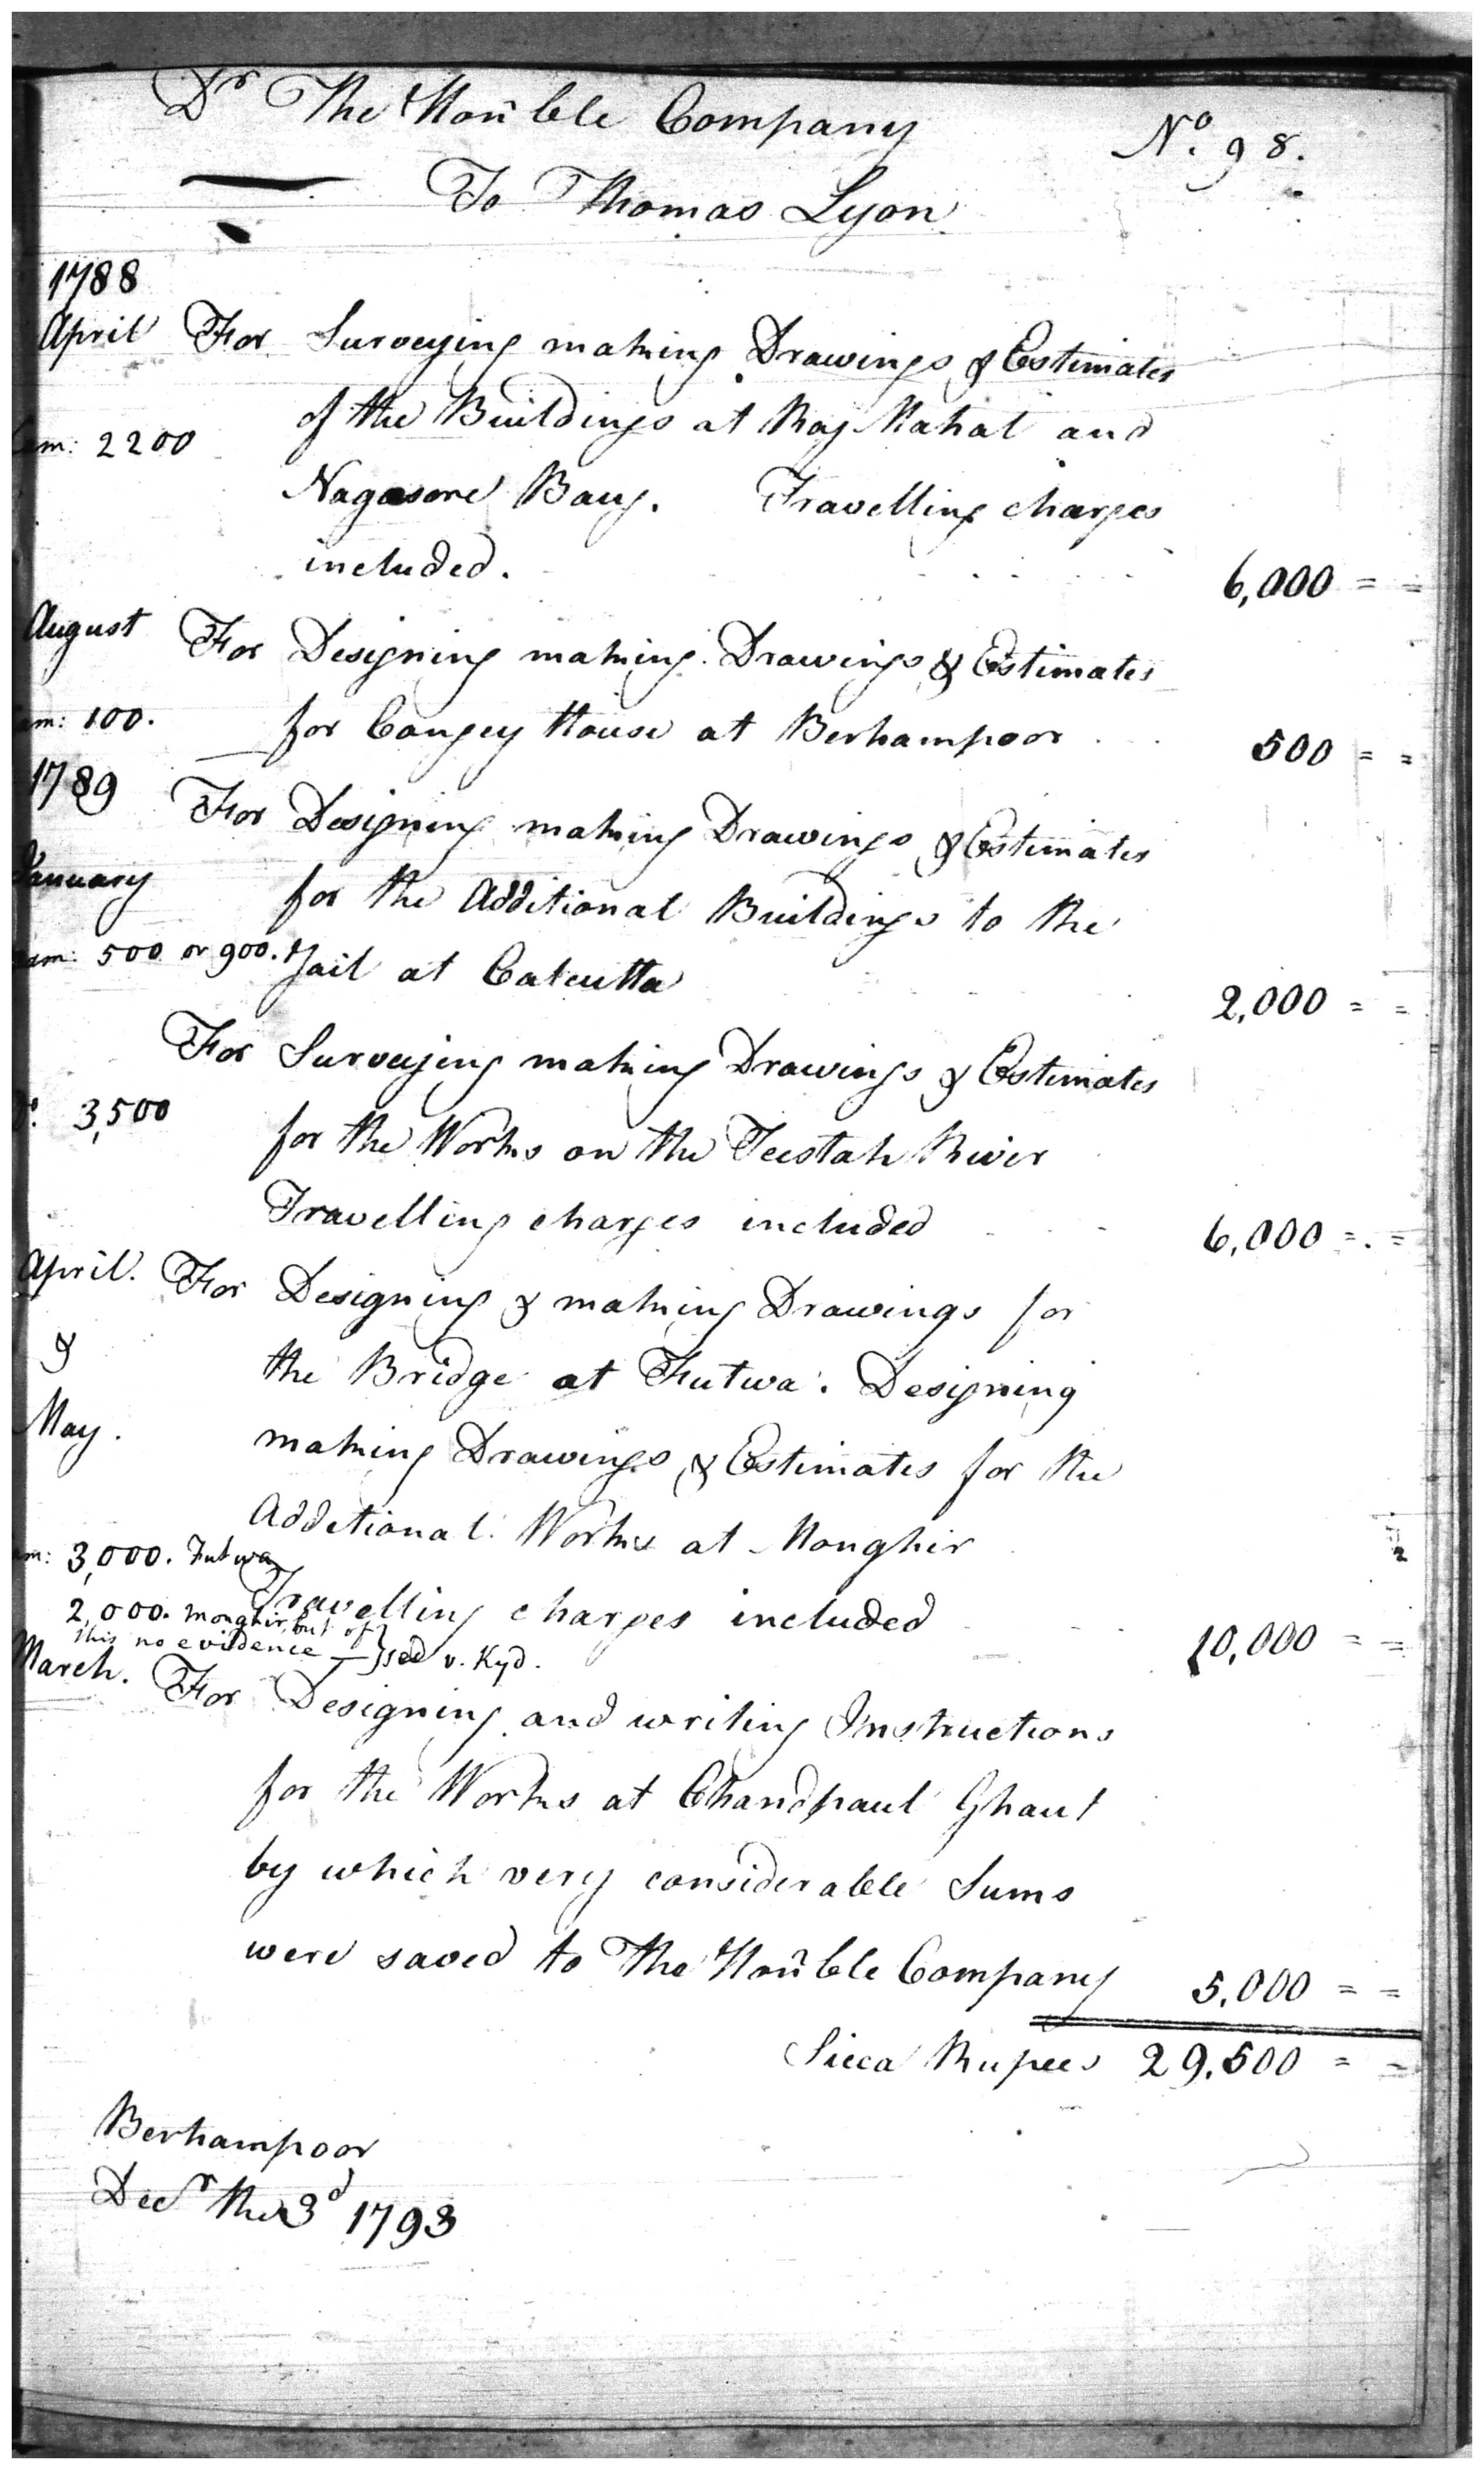 Dr The Honble Company
No. 98.
To Thomas Lyon
1788
April For Surveying making Drawings & Estimates
of the Buildings at Raj Mahal and
2200
Nagasore Baug. Travelling charges
included. 6,000 = =
August For Designing making Drawings & Estimates
100. for Congey House at Berhampoor 500 = =
1789 For Designing making Drawings & Estimates
January for the Additional Buildings to the
500 or 900. Jail at Calcutta 2,000 = =
For Surveying making Drawings & Estimates
Do. 3,500 for the Works on the Teestah River
Travelling charges included 6,000 = =
April. For Designing & making Drawings for
& the Bridge at Futwa. Designing
May. making Drawings & Estimates for the
Additional Works at Monghir
3,000. Futwa
Travelling charges included 10,000 = =
2,000. Monghir, but of
this no evidence — } sed v. Kyd.
March. For Designing and writing Instructions
for the Works at Chandpaul Ghaut
by which very considerable Sums
were saved to The Honble Company 5,000 = =
Sicca Rupees 29,500 = =
Berhampoor
Decr the 3d 1793